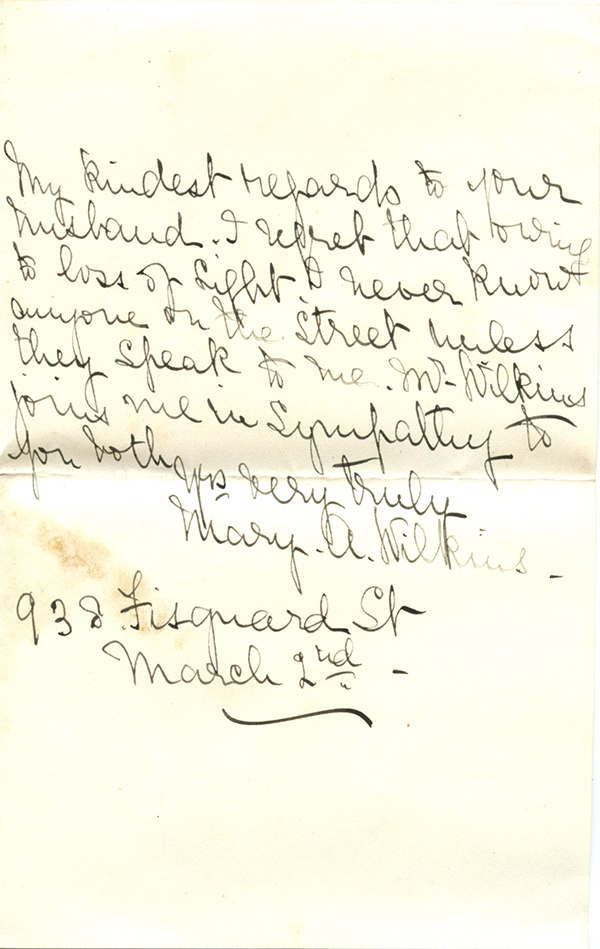 My kindest regards to your
husband. I regret that owing
to loss of Sight I never know
anyone on the Street unless
they speak to me. Mr. Wilkins
joins me in Sympathy to
you both
Yrs very truly
Mary. A. Wilkins.
938 Fisguard St
March 2nd